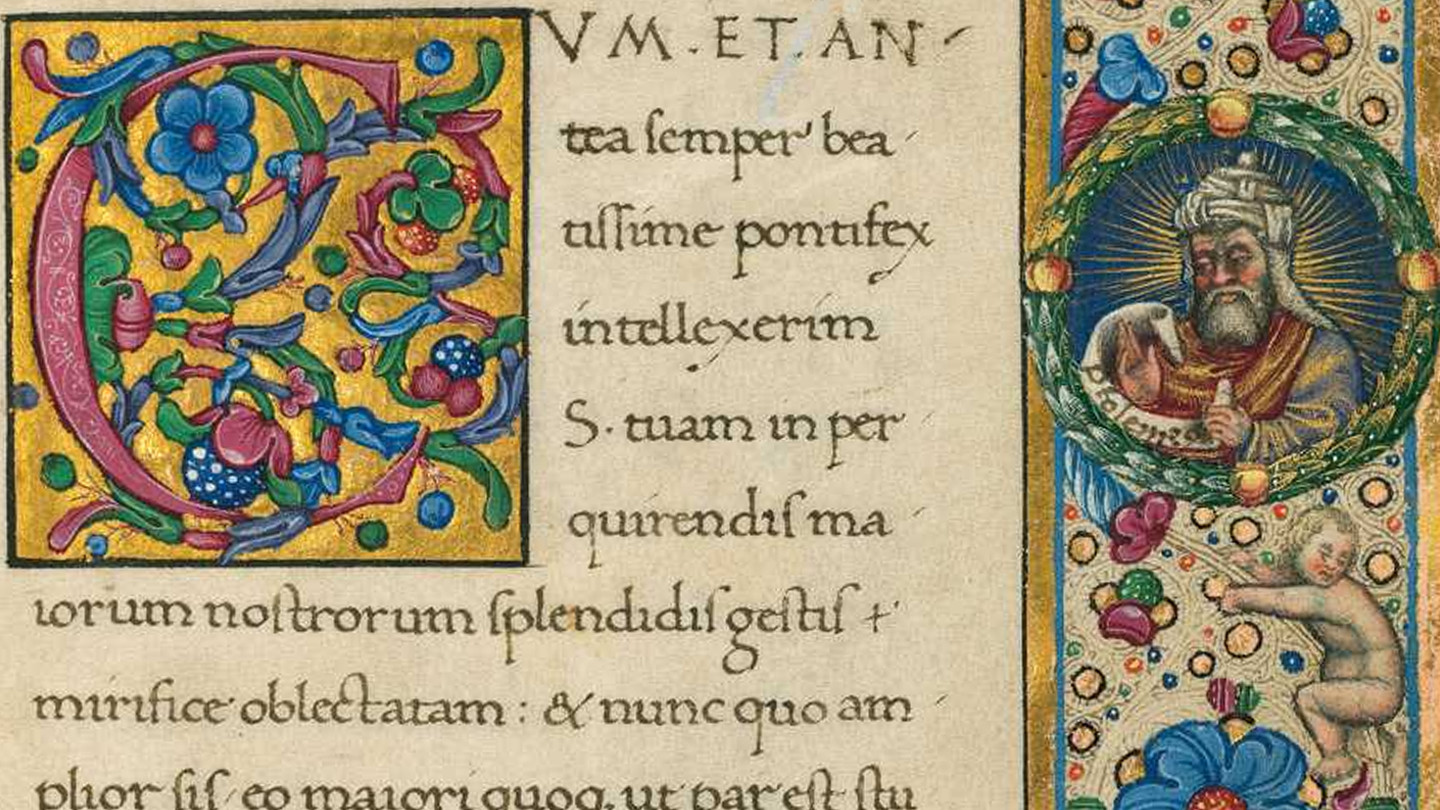 CVM.ET.AN-
tea semper bea
tissime pontifex
intellexerim
S. tuam in per
quirendis ma
iorum nostrorum splendidis gestis +
mirifice oblectatam: & nunc quo am
plior sis, eo maiori quoq. ut par est stu